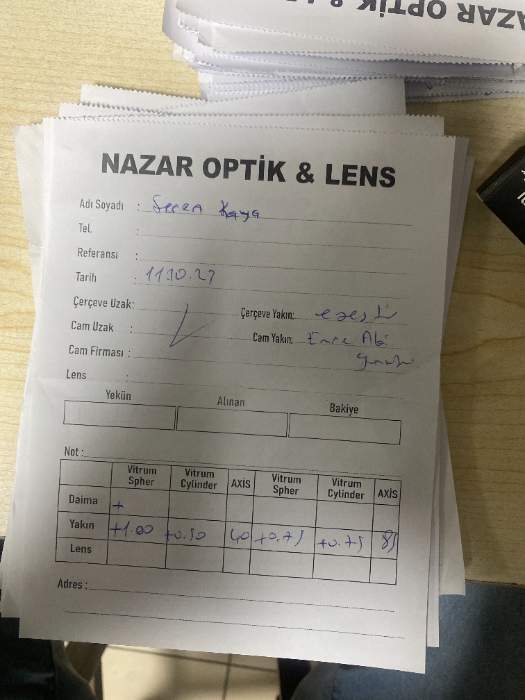 NAZAR OPTİK &
NAZAR OPTİK & LENS
Adı Soyadı : Kaya
Tel. :
Referansı :
Tarih : 11.10.27
Çerçeve Uzak: Çerçeve Yakın:
Cam Uzak : Cam Yakın: Emre Abi
Cam Firması :
Lens :
Yekün Alınan Bakiye
Not :
Vitrum Spher Vitrum Cylinder AXİS Vitrum Spher Vitrum Cylinder AXİS
Daima +
Yakın +1.00 +0.50 40 +0.75 +0.75 85
Lens
Adres :